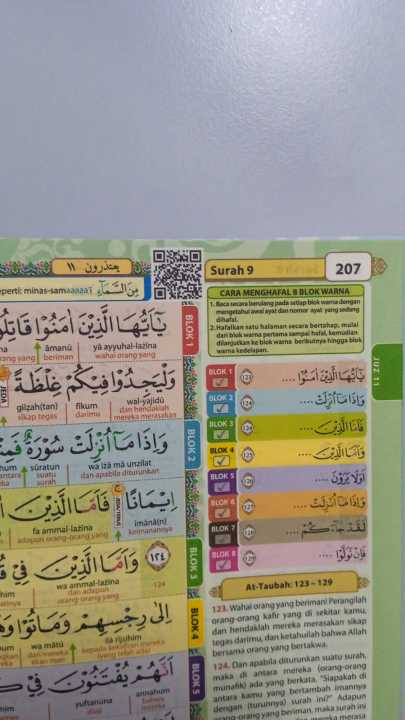 يعتذرون ١١
Surah 9
207
eperti: minas-samaaaaa'i مِنَ السَّمَآءِ
CARA MENGHAFAL 8 BLOK WARNA
1. Baca secara berulang pada setiap blok warna dengan
mengetahui awal ayat dan nomor ayat yang sedang
dihafal.
2. Hafalkan satu halaman secara bertahap, mulai
dari blok warna pertama sampai hafal, kemudian
dilanjutkan ke blok warna berikutnya hingga blok
warna kedelapan.
JUZ 11
BLOK 1
يٰٓاَيُّهَا الَّذِيْنَ اٰمَنُوْا
yang āmanū yā ayyuhal-lażīna
orang yang beriman wahai orang-orang
وَلْيَجِدُوْا فِيْكُمْ غِلْظَةً
gilẓah(tan) fīkum wal-yajidū
sikap tegas darimu dan hendaklah
mereka merasakan
BLOK 2
وَاِذَا مَآ اُنْزِلَتْ سُوْرَةٌ
sūratun wa iżā mā unzilat
suatu surah dan apabila diturunkan
اِيْمَانًا فَاَمَّا الَّذِيْنَ
fa ammal-lażīna īmānā(n)
adapun orang-orang keimanannya
BLOK 3
١٢٤ وَاَمَّا الَّذِيْنَ فِيْ
wa ammal-lażīna 124
dan adapun
orang-orang yang
BLOK 4
اِلٰى رِجْسِهِمْ وَمَاتُوْا
wa mātū ilā rijsihim
BLOK 5
اَنَّهُمْ يُفْتَنُوْنَ فِيْ
yuftanūna annahum
bahwa
mereka
BLOK 1 (123) يٰٓاَيُّهَا الَّذِيْنَ اٰمَنُوْا ....
BLOK 2 (124) وَاِذَا مَآ اُنْزِلَتْ ....
BLOK 3 (124) فَاَمَّا الَّذِيْنَ ....
BLOK 4 (125) وَاَمَّا الَّذِيْنَ ....
BLOK 5 (126) اَوَلَا يَرَوْنَ ....
BLOK 6 (127) وَاِذَا مَآ اُنْزِلَتْ ....
BLOK 7 (128) لَقَدْ جَاۤءَكُمْ ....
BLOK 8 (129) فَاِنْ تَوَلَّوْا ....
At-Taubah: 123 – 129
123. Wahai orang yang beriman! Perangilah
orang-orang kafir yang di sekitar kamu,
dan hendaklah mereka merasakan sikap
tegas darimu, dan ketahuilah bahwa Allah
bersama orang yang bertakwa.
124. Dan apabila diturunkan suatu surah,
maka di antara mereka (orang-orang
munafik) ada yang berkata, "Siapakah di
antara kamu yang bertambah imannya
dengan (turunnya) surah ini?" Adapun
orang-orang yang beriman, maka surah ini